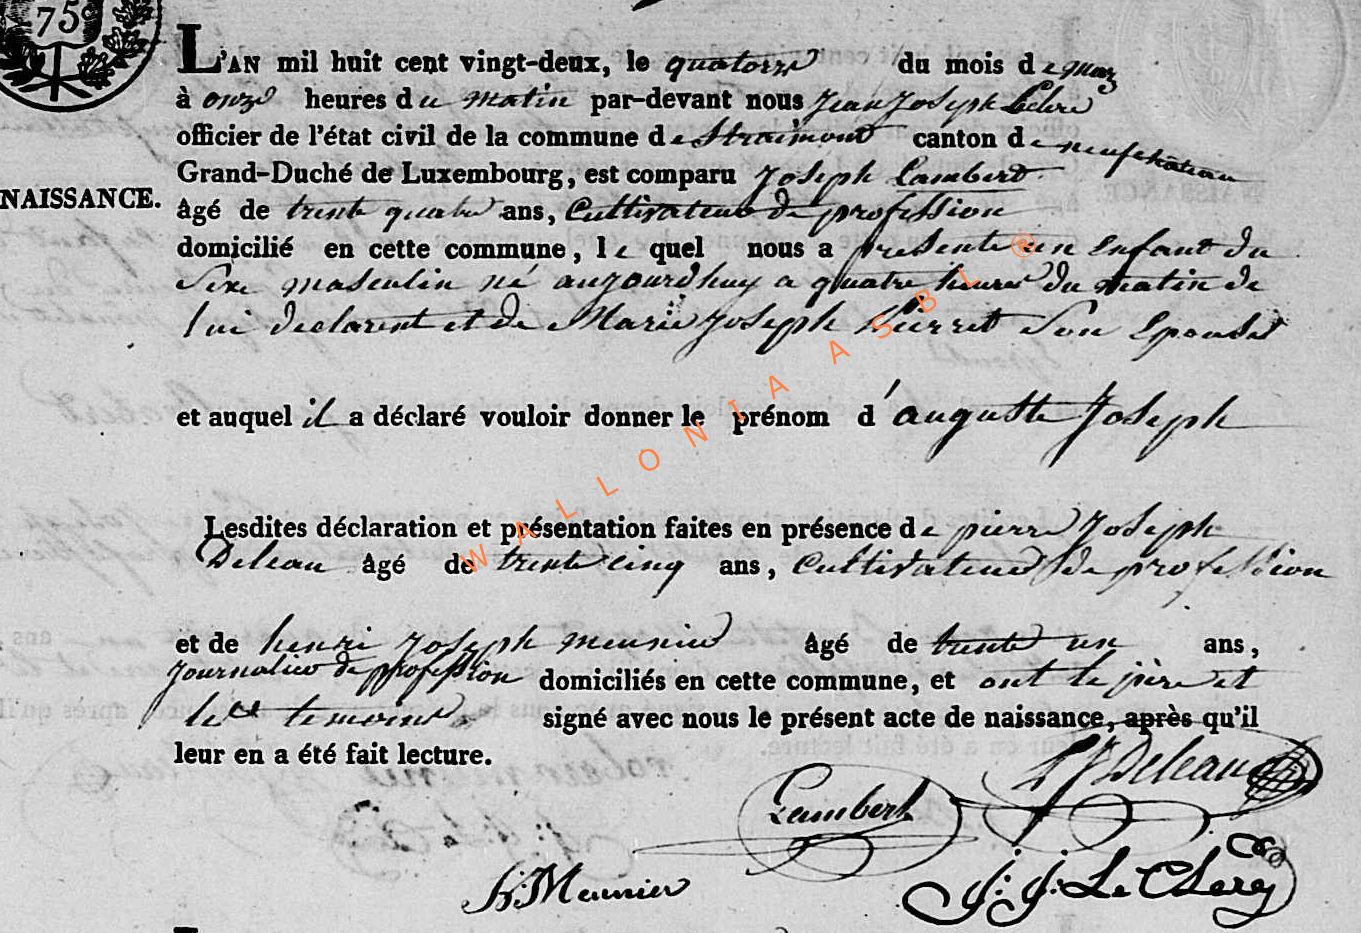 75
L'AN mil huit cent vingt-deux, le quatorze du mois de mars
à onze heures du matin par-devant nous jean joseph Leclere
officier de l'état civil de la commune de Straimont canton de neufchateau
Grand-Duché de Luxembourg, est comparu joseph Lambert
NAISSANCE.
âgé de trente quatre ans, Cultivateur de profession
domicilié en cette commune, le quel nous a presente un enfant du
Sexe masculin né aujourdhuy a quatre heures du matin de
lui declarent et de Marie joseph son Epouse
et auquel il a déclaré vouloir donner le prénom d'auguste Joseph
Lesdites déclaration et présentation faites en présence de pierre Joseph
Deleau âgé de trente cinq ans, Cultivateur de profession
et de henri Joseph meunier âgé de trente un ans,
journalier de profession domiciliés en cette commune, et ont le père et
les temoins signé avec nous le présent acte de naissance, après qu'il
leur en a été fait lecture.
PJ Deleau
Lambert
H: Meunier
J: J: Le Clere
WALLONIA ASBL ®